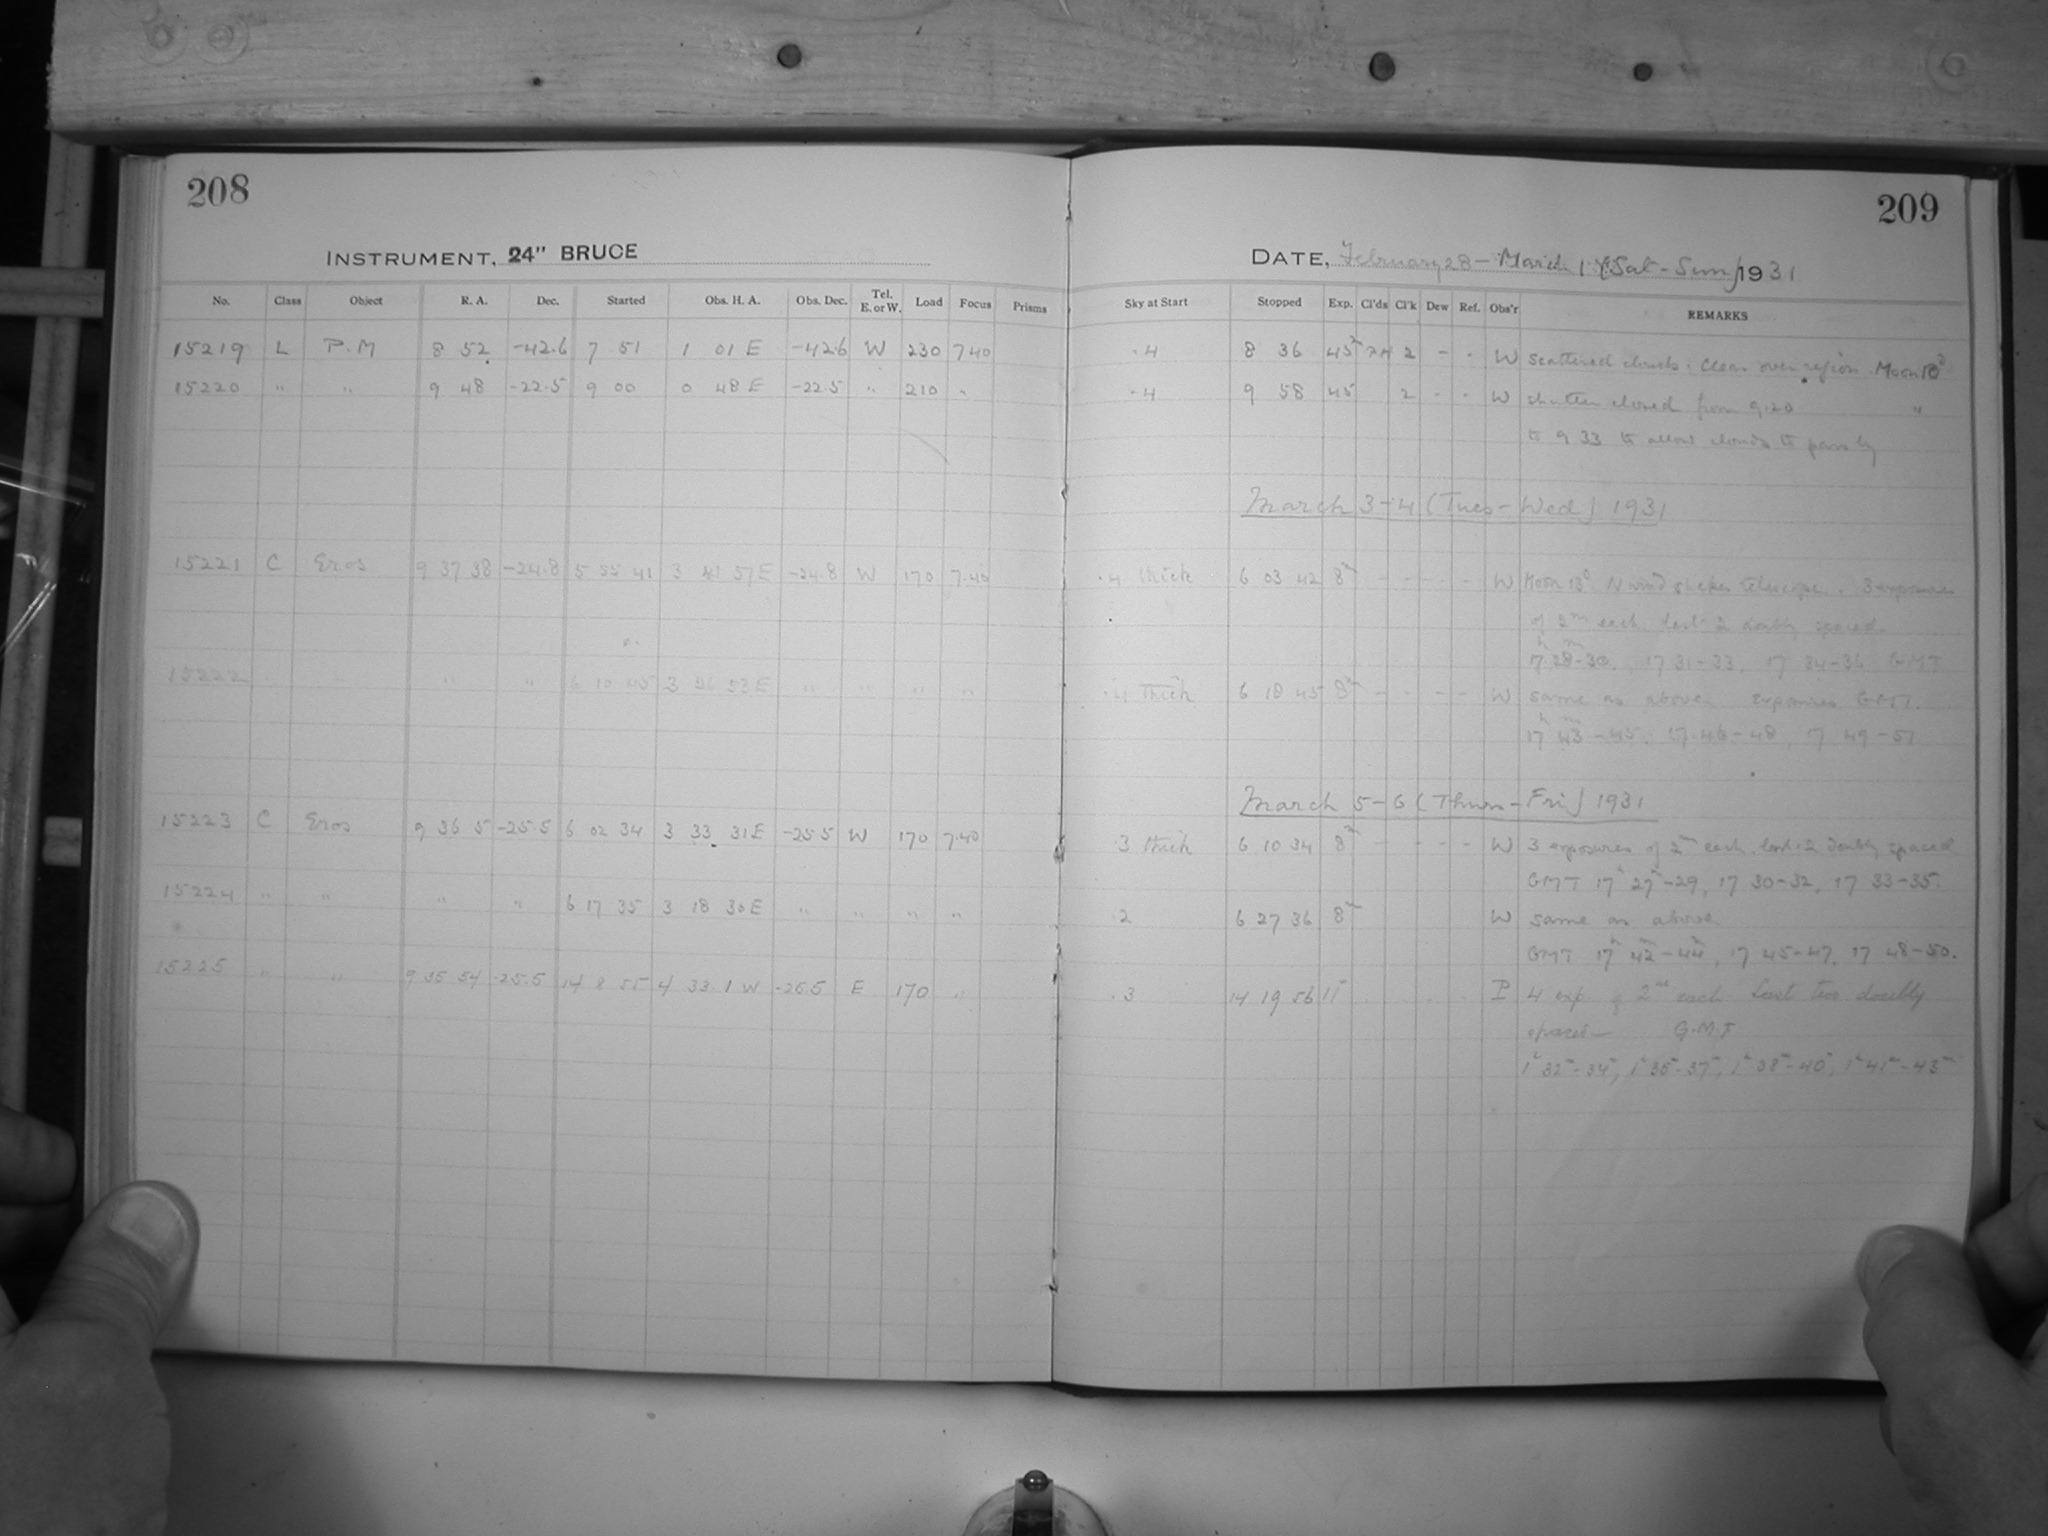 208
209
INSTRUMENT, 24" BRUCE
DATE, February 28 - March 1 (Sat - Sun) 1931
No. Class Object R. A. Dec. Started Obs. H. A. Obs. Dec. Tel. E. or W. Load Focus Prisms Sky at Start Stopped Exp. Cl'ds Cl'k Dew Ref. Obs'r REMARKS
15219 L P.M 8 52 -42.6 7 51 1 01 E -42.6 W 230 7.40 .4 8 36 45m 2 - - W scattered clouds. Clear over region. Moon
15220 " " 9 48 -22.5 9 00 0 48 E -22.5 " 210 " .4 9 58 45 2 - - W shutter closed from 9.20 "
to 9 33 to allow clouds to pass by
March 3-4 (Tues - Wed) 1931
15221 C Eros 9 37 38 -24.8 5 55 41 3 41 57 E -24.8 W 170 7.40 .4 thick 6 03 42 8m - - - - W Moon 13d N wind shakes telescope. 3 exposures
of 2m each last 2 doubly spaced.
17h 28m-30, 17 31-33, 17 34-36 GMT
15222 " " 6 10 45 3 26 53 E " " " " .4 thick 6 18 45 8m - - - - W same as above exposures GMT.
17h 43m-45, 17 46-48, 17 49-51
March 5-6 (Thurs - Fri) 1931
15223 C Eros 9 36 5 -25.5 6 02 34 3 33 31 E -25.5 W 170 7.40 .3 thick 6 10 34 8m - - - - W 3 exposures of 2m each, last 2 doubly spaced
GMT 17h 27m-29, 17 30-32, 17 33-35.
15224 " " " " 6 17 35 3 18 30 E " " " " .2 6 27 36 8m W same as above
GMT 17h 42m-44m, 17 45-47, 17 48-50.
15225 " " 9 35 54 -25.5 14 8 55 4 33 1 W -25.5 E 170 " .3 14 19 56 11 P 4 exp of 2m each Last two doubly
spaced G.M.T
1h 32m-34m, 1h 35m-37m, 1h 38m-40m, 1h 41m-43m